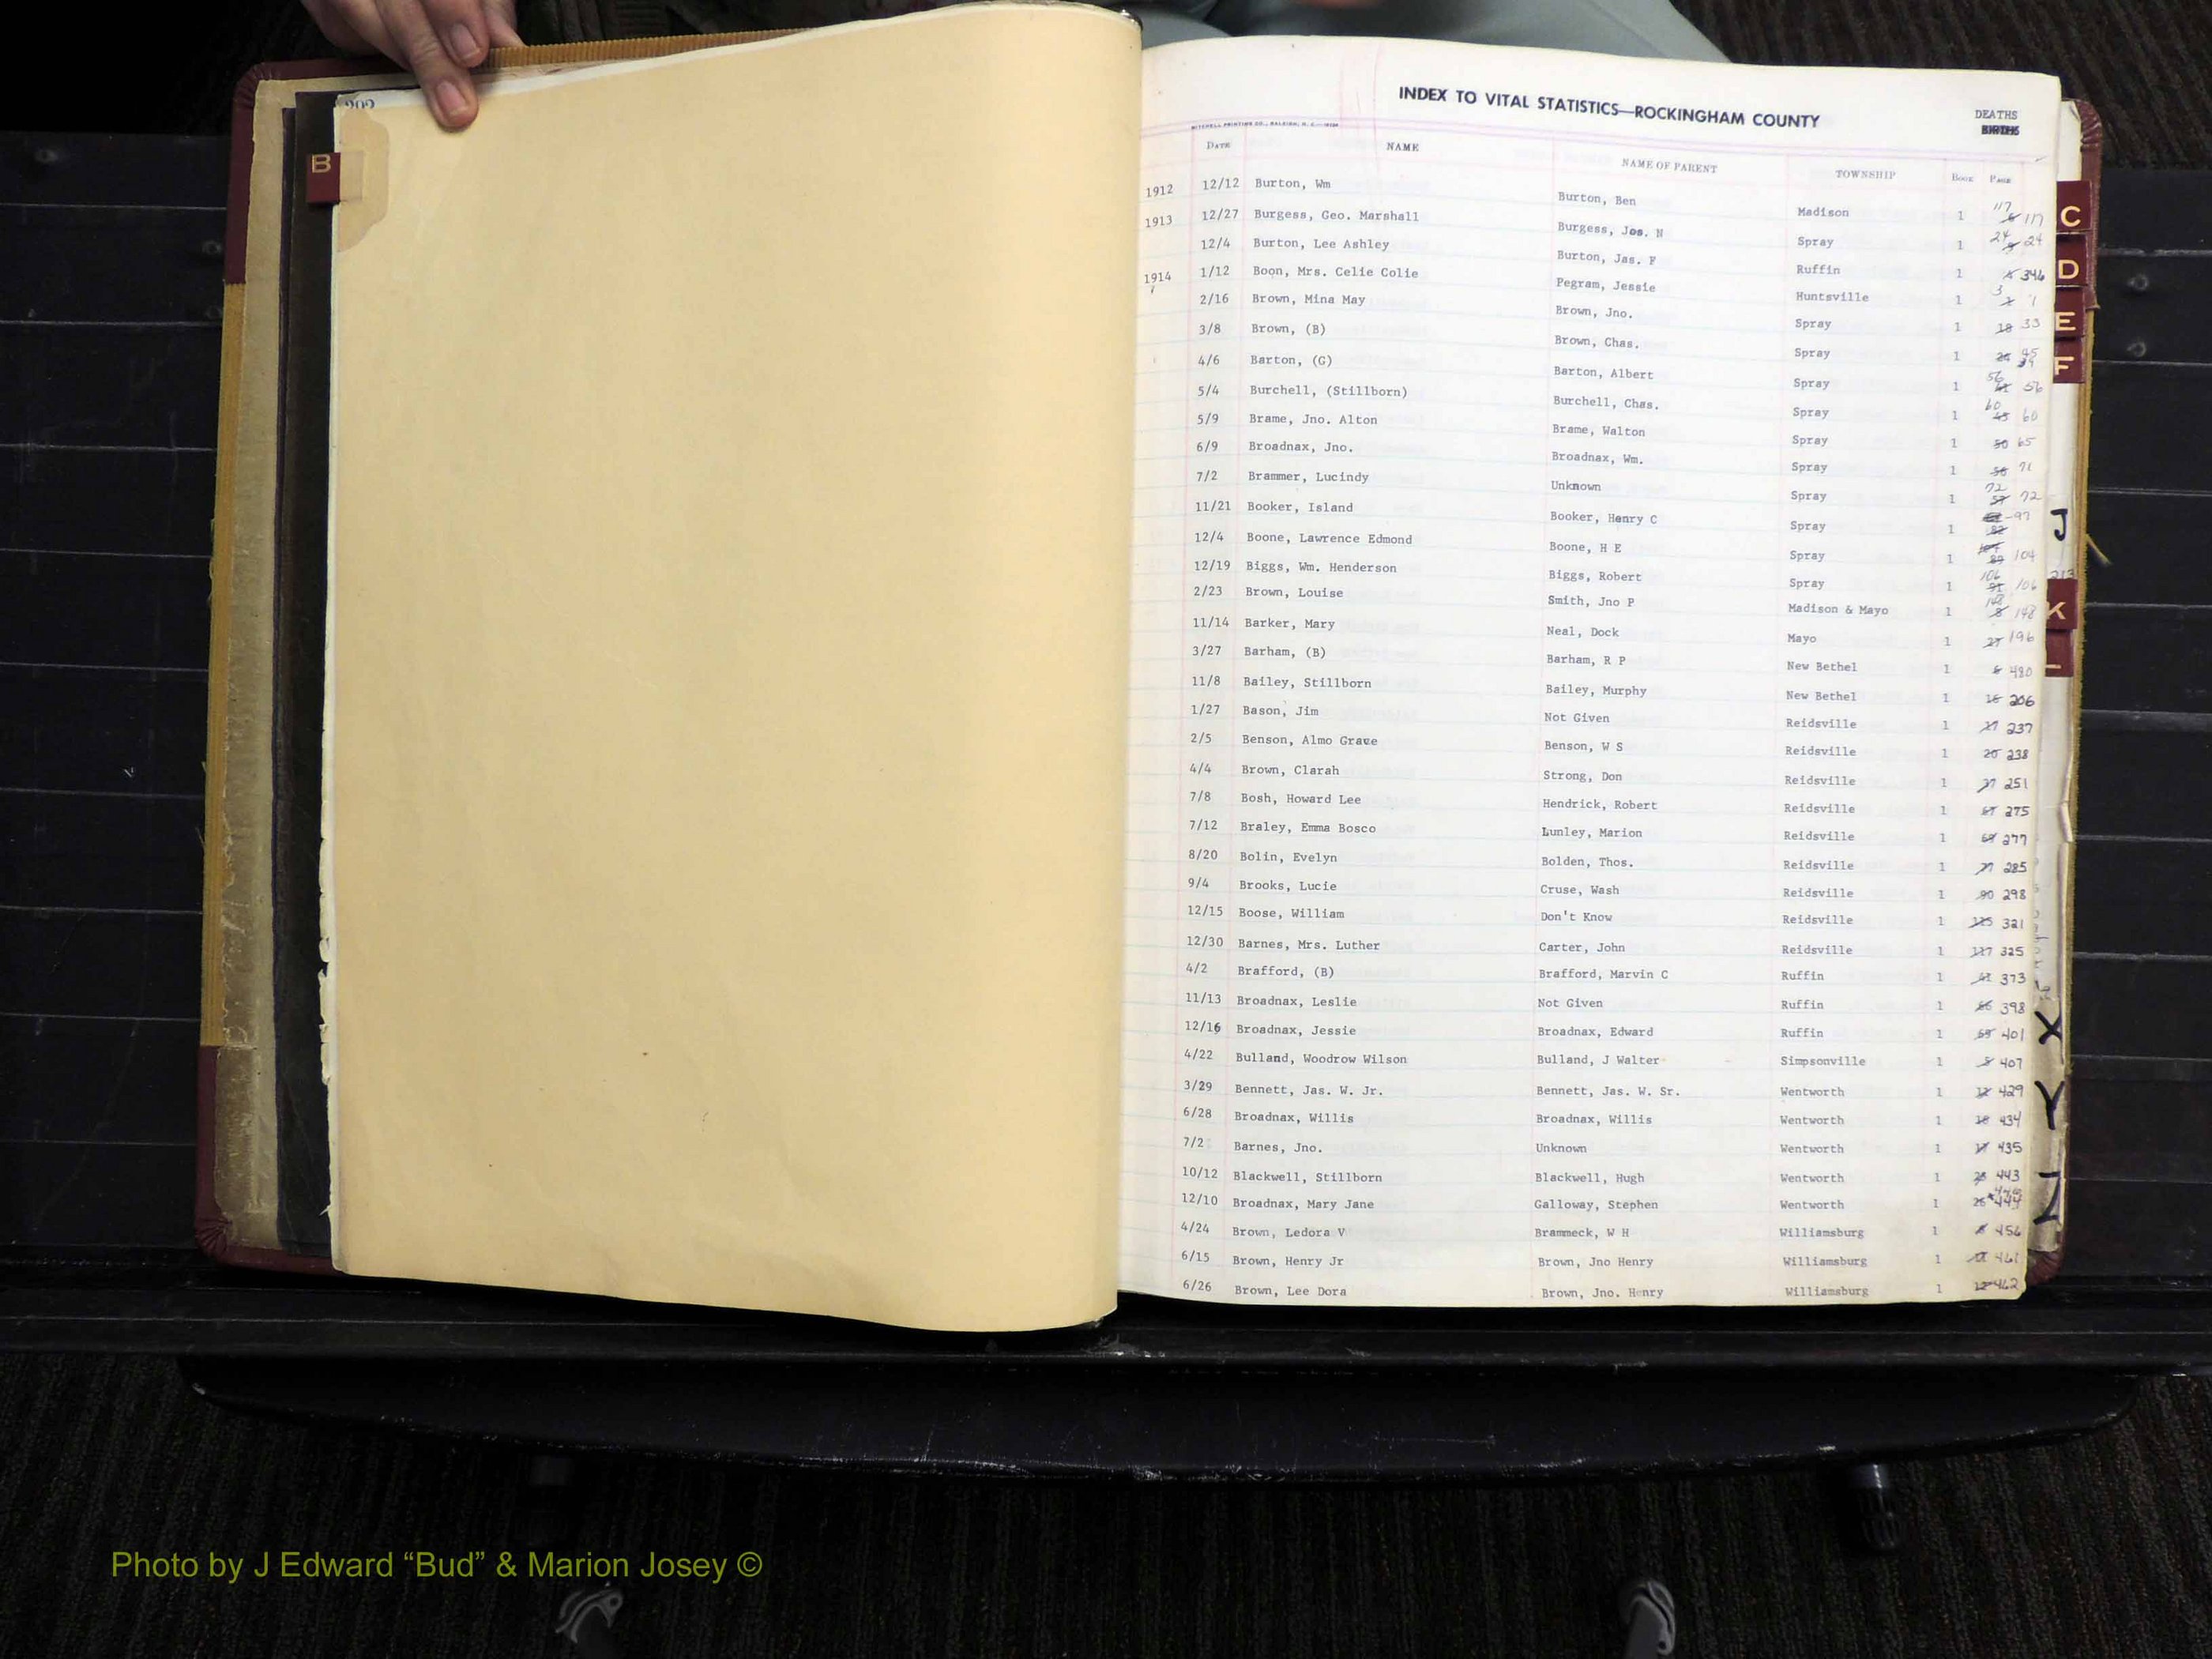 B
INDEX TO VITAL STATISTICS—ROCKINGHAM COUNTY
DEATHS
BIRTHS
MITCHELL PRINTING CO., RALEIGH, N. C.
DATE NAME NAME OF PARENT TOWNSHIP BOOK PAGE
1912 12/12 Burton, Wm Burton, Ben Madison 1 117 117
1913 12/27 Burgess, Geo. Marshall Burgess, Jos. N Spray 1 24 24
12/4 Burton, Lee Ashley Burton, Jas. F Ruffin 1 346
1914 1/12 Boon, Mrs. Celie Colie Pegram, Jessie Huntsville 1 3
2/16 Brown, Mina May Brown, Jno. Spray 1 18 33
3/8 Brown, (B) Brown, Chas. Spray 1
4/6 Barton, (G) Barton, Albert Spray 1 56 56
5/4 Burchell, (Stillborn) Burchell, Chas. Spray 1 60 45 60
5/9 Brame, Jno. Alton Brame, Walton Spray 1 50 65
6/9 Broadnax, Jno. Broadnax, Wm. Spray 1 56 71
7/2 Brammer, Lucindy Unknown Spray 1 72 57 72
11/21 Booker, Island Booker, Henry C Spray 1 82 97
12/4 Boone, Lawrence Edmond Boone, H E Spray 1 89 104
12/19 Biggs, Wm. Henderson Biggs, Robert Spray 1 106 91 106
2/23 Brown, Louise Smith, Jno P Madison & Mayo 1 148 8 148
11/14 Barker, Mary Neal, Dock Mayo 1 27 196
3/27 Barham, (B) Barham, R P New Bethel 1 6 480
11/8 Bailey, Stillborn Bailey, Murphy New Bethel 1 16 206
1/27 Bason, Jim Not Given Reidsville 1 237
2/5 Benson, Almo Grace Benson, W S Reidsville 1 20 238
4/4 Brown, Clarah Strong, Don Reidsville 1 37 251
7/8 Bosh, Howard Lee Hendrick, Robert Reidsville 1 67 275
7/12 Braley, Emma Bosco Lunley, Marion Reidsville 1 69 277
8/20 Bolin, Evelyn Bolden, Thos. Reidsville 1 77 285
9/4 Brooks, Lucie Cruse, Wash Reidsville 1 90 298
12/15 Boose, William Don't Know Reidsville 1 321
12/30 Barnes, Mrs. Luther Carter, John Reidsville 1 117 325
4/2 Brafford, (B) Brafford, Marvin C Ruffin 1 41 373
11/13 Broadnax, Leslie Not Given Ruffin 1 66 398
12/16 Broadnax, Jessie Broadnax, Edward Ruffin 1 69 401
4/22 Bulland, Woodrow Wilson Bulland, J Walter Simpsonville 1 407
3/29 Bennett, Jas. W. Jr. Bennett, Jas. W. Sr. Wentworth 1 429
6/28 Broadnax, Willis Broadnax, Willis Wentworth 1 434
7/2 Barnes, Jno. Unknown Wentworth 1 17 435
10/12 Blackwell, Stillborn Blackwell, Hugh Wentworth 1 443
12/10 Broadnax, Mary Jane Galloway, Stephen Wentworth 1 26
4/24 Brown, Ledora V Brammeck, W H Williamsburg 1 456
6/15 Brown, Henry Jr Brown, Jno Henry Williamsburg 1 461
6/26 Brown, Lee Dora Brown, Jno. Henry Williamsburg 1 12 462
C
D
E
F
J
K
X
Y
Photo by J Edward “Bud” & Marion Josey ©